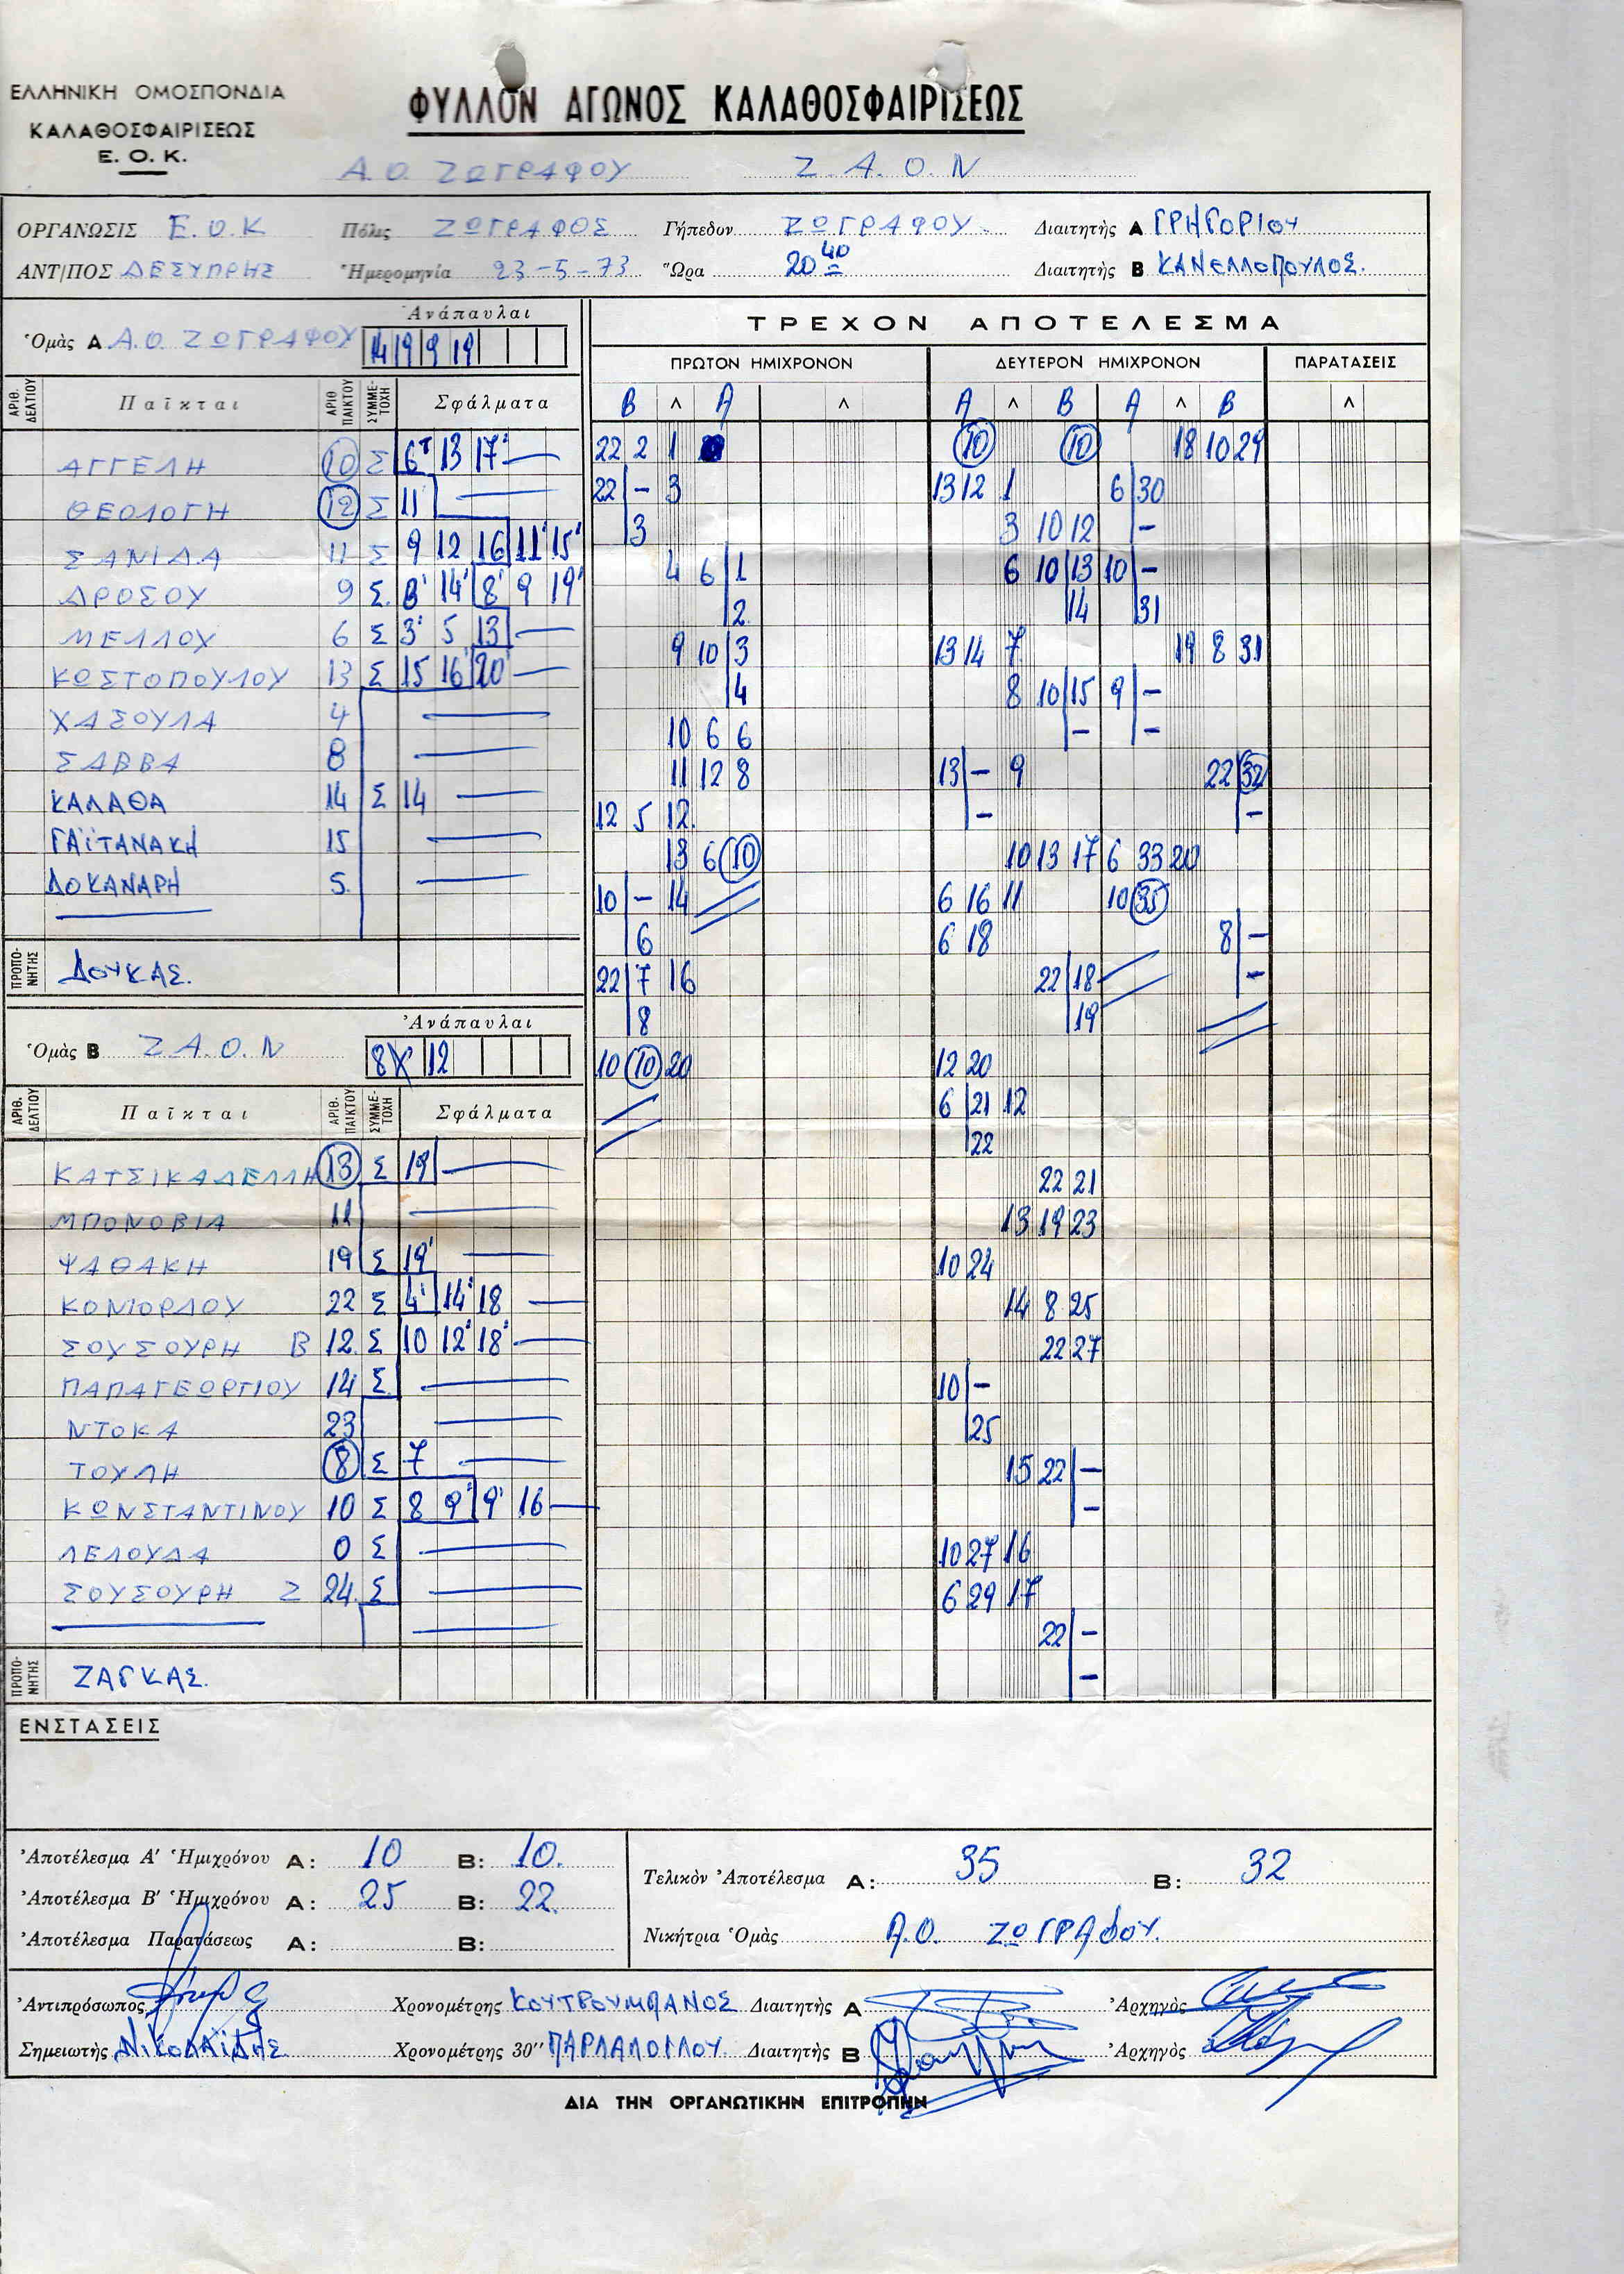 ΕΛΛΗΝΙΚΗ ΟΜΟΣΠΟΝΔΙΑ
ΚΑΛΑΘΟΣΦΑΙΡΙΣΕΩΣ
Ε. Ο. Κ.
ΦΥΛΛΟΝ ΑΓΩΝΟΣ ΚΑΛΑΘΟΣΦΑΙΡΙΣΕΩΣ
Α.Ο. ΖΩΓΡΑΦΟΥ Ζ.Α.Ο.Ν
ΟΡΓΑΝΩΣΙΣ Ε.Ο.Κ Πόλις ΖΩΓΡΑΦΟΣ Γήπεδον ΖΩΓΡΑΦΟΥ. Διαιτητὴς Α ΓΡΗΓΟΡΙΟΥ
ΑΝΤ/ΠΟΣ ΔΕΣΥΠΡΗΣ Ἡμερομηνία 23-5-73 Ὥρα 20 40 Διαιτητὴς Β ΚΑΝΕΛΛΟΠΟΥΛΟΣ.
Ὁμὰς Α Α.Ο. ΖΩΓΡΑΦΟΥ Ἀνάπαυλαι 14 19 9 19
ΑΡΙΘ. ΔΕΛΤΙΟΥ Παῖκται ΑΡΙΘ ΠΑΙΚΤΟΥ ΣΥΜΜΕ-ΤΟΧΗ Σφάλματα
ΑΓΓΕΛΗ 10 Σ 6 13 17'
ΘΕΟΛΟΓΗ 12 Σ 11
ΣΑΝΙΔΑ 11 Σ 9 12 16 11' 15'
ΔΡΟΣΟΥ 9 Σ. 8' 14' 8' 9 19'
ΜΕΛΛΟΥ 6 Σ 3' 5 13
ΚΩΣΤΟΠΟΥΛΟΥ 13 Σ 15 16' 20'
ΧΑΣΟΥΛΑ 4
ΣΑΒΒΑ 8
ΚΑΛΑΘΑ 14 Σ 14
ΓΑΪΤΑΝΑΚΗ 15
ΔΟΚΑΝΑΡΗ 5.
ΠΡΟΠΟ-ΝΗΤΗΣ ΔΟΥΚΑΣ.
Ὁμὰς Β Ζ.Α.Ο.Ν Ἀνάπαυλαι 8 X 12
ΑΡΙΘ. ΔΕΛΤΙΟΥ Παῖκται ΑΡΙΘ. ΠΑΙΚΤΟΥ ΣΥΜΜΕ-ΤΟΧΗ Σφάλματα
ΚΑΤΣΙΚΑΔΕΛΛΗ 13 Σ 19
ΜΠΟΝΟΒΙΑ 11
ΨΑΘΑΚΗ 19 Σ 19'
ΚΟΝΙΟΡΔΟΥ 22 Σ 4' 14' 18
ΣΟΥΣΟΥΡΗ Β 12. Σ 10 12' 18'
ΠΑΠΑΓΕΩΡΓΙΟΥ 14 Σ
ΝΤΟΚΑ 23
ΤΟΥΛΗ 8 Σ 7
ΚΩΝΣΤΑΝΤΙΝΟΥ 10 Σ 8 9' 9' 16
ΛΕΛΟΥΔΑ 0 Σ
ΣΟΥΣΟΥΡΗ Ζ 24. Σ
ΠΡΟΠΟ-ΝΗΤΗΣ ΖΑΓΚΑΣ.
ΤΡΕΧΟΝ ΑΠΟΤΕΛΕΣΜΑ
ΠΡΩΤΟΝ ΗΜΙΧΡΟΝΟΝ ΔΕΥΤΕΡΟΝ ΗΜΙΧΡΟΝΟΝ ΠΑΡΑΤΑΣΕΙΣ
Β Λ Α Λ Α Λ Β Α Λ Β Λ
22 2 1 10 10 18 10 29
22 - 3 13 12 1 6 30
3 3 10 12 -
4 6 1 6 10 13 10 -
2 14 31
9 10 3 13 14 7 19 8 31
4 8 10 15 9 -
10 6 6 - -
11 12 8 13 - 9 22 32
12 5 12. - -
13 6 10 10 13 17 6 33 20
10 - 14 6 16 11 10 35
6 6 18 8 -
22 7 16 22 18 -
8 19
10 10 20 12 20
6 21 12
22
22 21
13 19 23
10 24
14 8 25
22 27
10 -
25
15 22 -
-
10 27 16
6 29 17
22 -
-
ΕΝΣΤΑΣΕΙΣ
Ἀποτέλεσμα Α' Ἡμιχρόνου Α: 10 Β: 10.
Ἀποτέλεσμα Β' Ἡμιχρόνου Α: 25 Β: 22.
Ἀποτέλεσμα Παρατάσεως Α: Β:
Τελικὸν Ἀποτέλεσμα Α: 35 Β: 32
Νικήτρια Ὁμὰς Α.Ο. ΖΩΓΡΑΦΟΥ.
Ἀντιπρόσωπος Χρονομέτρης ΚΟΥΤΡΟΥΜΠΑΝΟΣ Διαιτητὴς Α Ἀρχηγὸς
Σημειωτὴς ΝΙΚΟΛΑΪΔΗΣ Χρονομέτρης 30" Διαιτητὴς Β Ἀρχηγὸς
ΔΙΑ ΤΗΝ ΟΡΓΑΝΩΤΙΚΗΝ ΕΠΙΤΡΟΠΗΝ